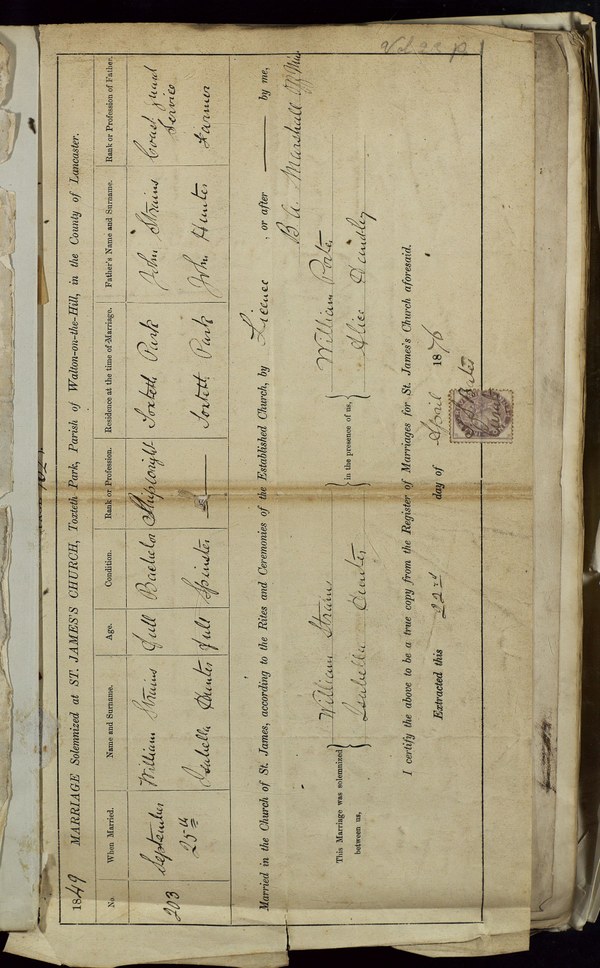 Vol 23 p
1849 MARRIAGE Solemnized at ST. JAMES'S CHURCH, Toxteth Park, Parish of Walton-on-the-Hill, in the County of Lancaster.
No. When Married. Name and Surname. Age. Condition. Rank or Profession. Residence at the time of Marriage. Father's Name and Surname. Rank or Profession of Father.
203 September 25th William Strains Full Bachelor Shipwright Toxteth Park John Strains Coast Guard Service
Isabella Hunter Full Spinster — Toxteth Park John Hunter Farmer
Married in the Church of St. James, according to the Rites and Ceremonies of the Established Church, by Licence , or after —— by me,
B A Marshall
This Marriage was solemnized between us, William Strains Isabella Hunter in the presence of us, William Porter Alice Handley
I certify the above to be a true copy from the Register of Marriages for St. James's Church aforesaid.
Extracted this 22nd day of April 1876